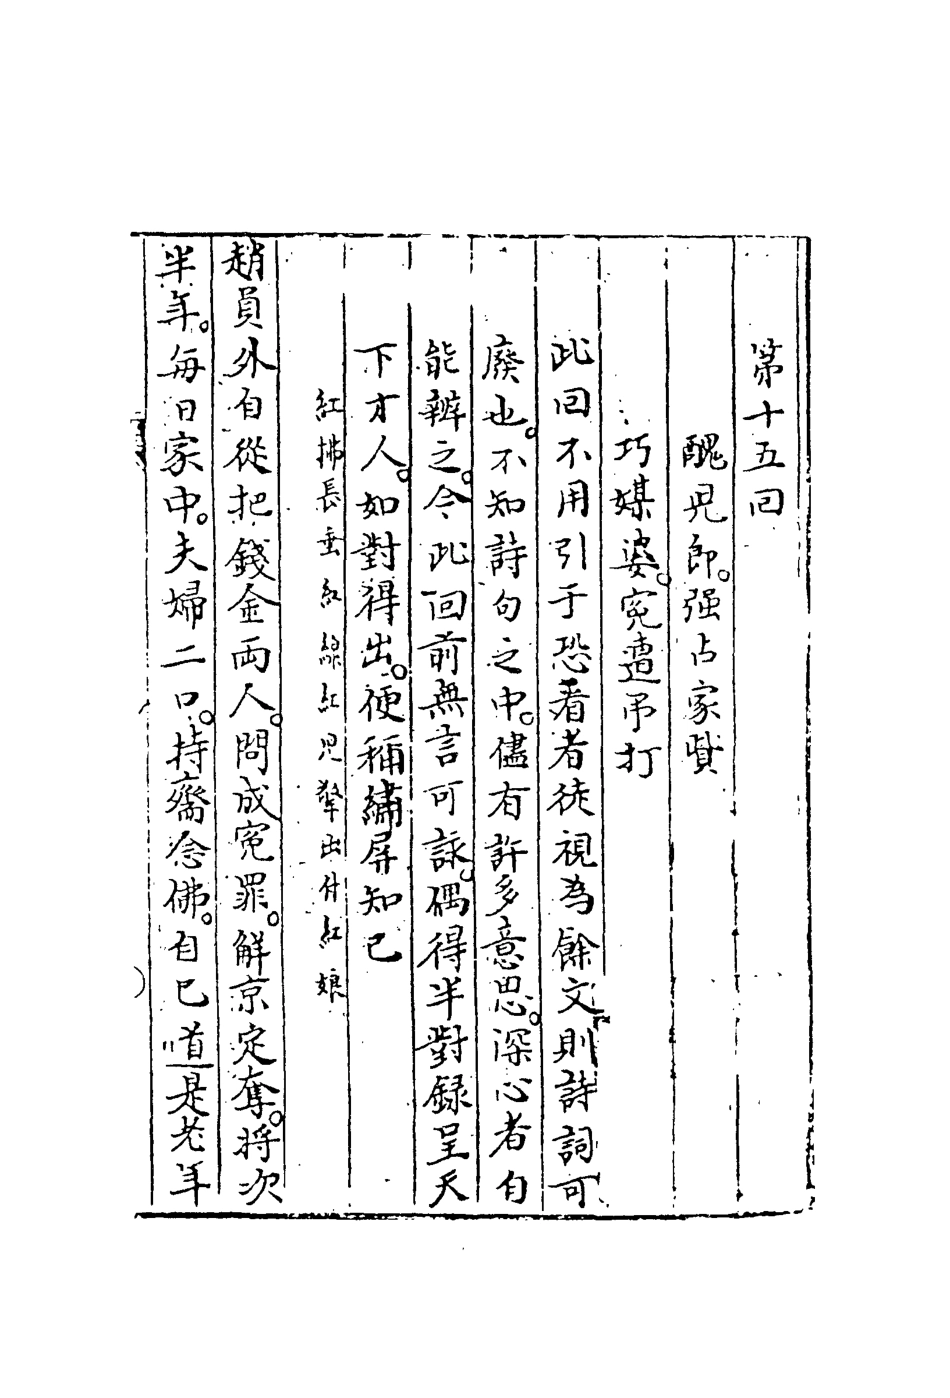 第十五回
醜兒郎。强占家貲
巧媒婆。冤遭吊打
此回不用引于恐看者徒視為餘文則詩詞可
廢也。不知詩句之中。儘有許多意思。深心者自
能辨之。今此回前無言可詠。偶得半對録呈天
下才人。如對得出。便稱繡屏知己
紅拂長垂紅線紅児擎出付紅娘
趙員外自從把錢金両人。問成冤罪。解京定奪。將次
半年。每日家中。夫婦二口。持齋念佛。自已道是老年